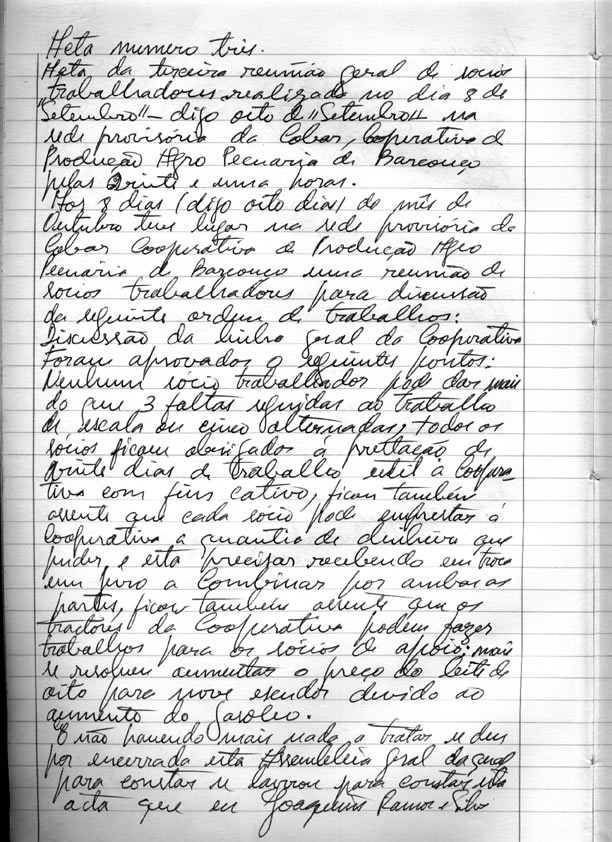 Acta numero três.
Acta da terceira reunião geral de socios
trabalhadores realizado no dia 8 de
"Setembro" - digo oito de "Setembro" na
sede provisória da Cobar, Cooperativa de
Produção Agro Pecuaria de Barcouço
pelas vinte e uma horas.
Aos 8 dias (digo oito dias) do mês de
Outubro teve lugar na sede provisória da
Cobar Cooperativa de Produção Agro
Pecuária de Barcouço uma reunião de
socios trabalhadores para discussão
da seguinte ordem de trabalhos:
Discussão da linha geral da Cooperativa
Foram aprovados o seguintes pontos:
Nenhum sócio trabalhador pode dar mais
do que 3 faltas seguidas ao trabalho
de escala ou cinco alternadas, todos os
sócios ficam obrigados á prestação de
vinte dias de trabalho util á coopera-
tiva com fins cativo, ficou também
assente que cada sócio pode emprestar á
Cooperativa a quantia de dinheiro que
puder e esta precisar recebendo em troca
um juro a Combinar por ambas as
partes, ficou também assente que os
tractores da Cooperativa podem fazer
trabalhos para os sócios de apoio; mais
se resolveu aumentar o preço do leite de
oito para nove escudos devido ao
aumento do Gasoleo.
E não havendo mais nada a tratar se deu
por encerrada esta Assembleia Geral da qual
para constar se lavrou para constar esta
acta que eu Joaquim Ramos e Silva